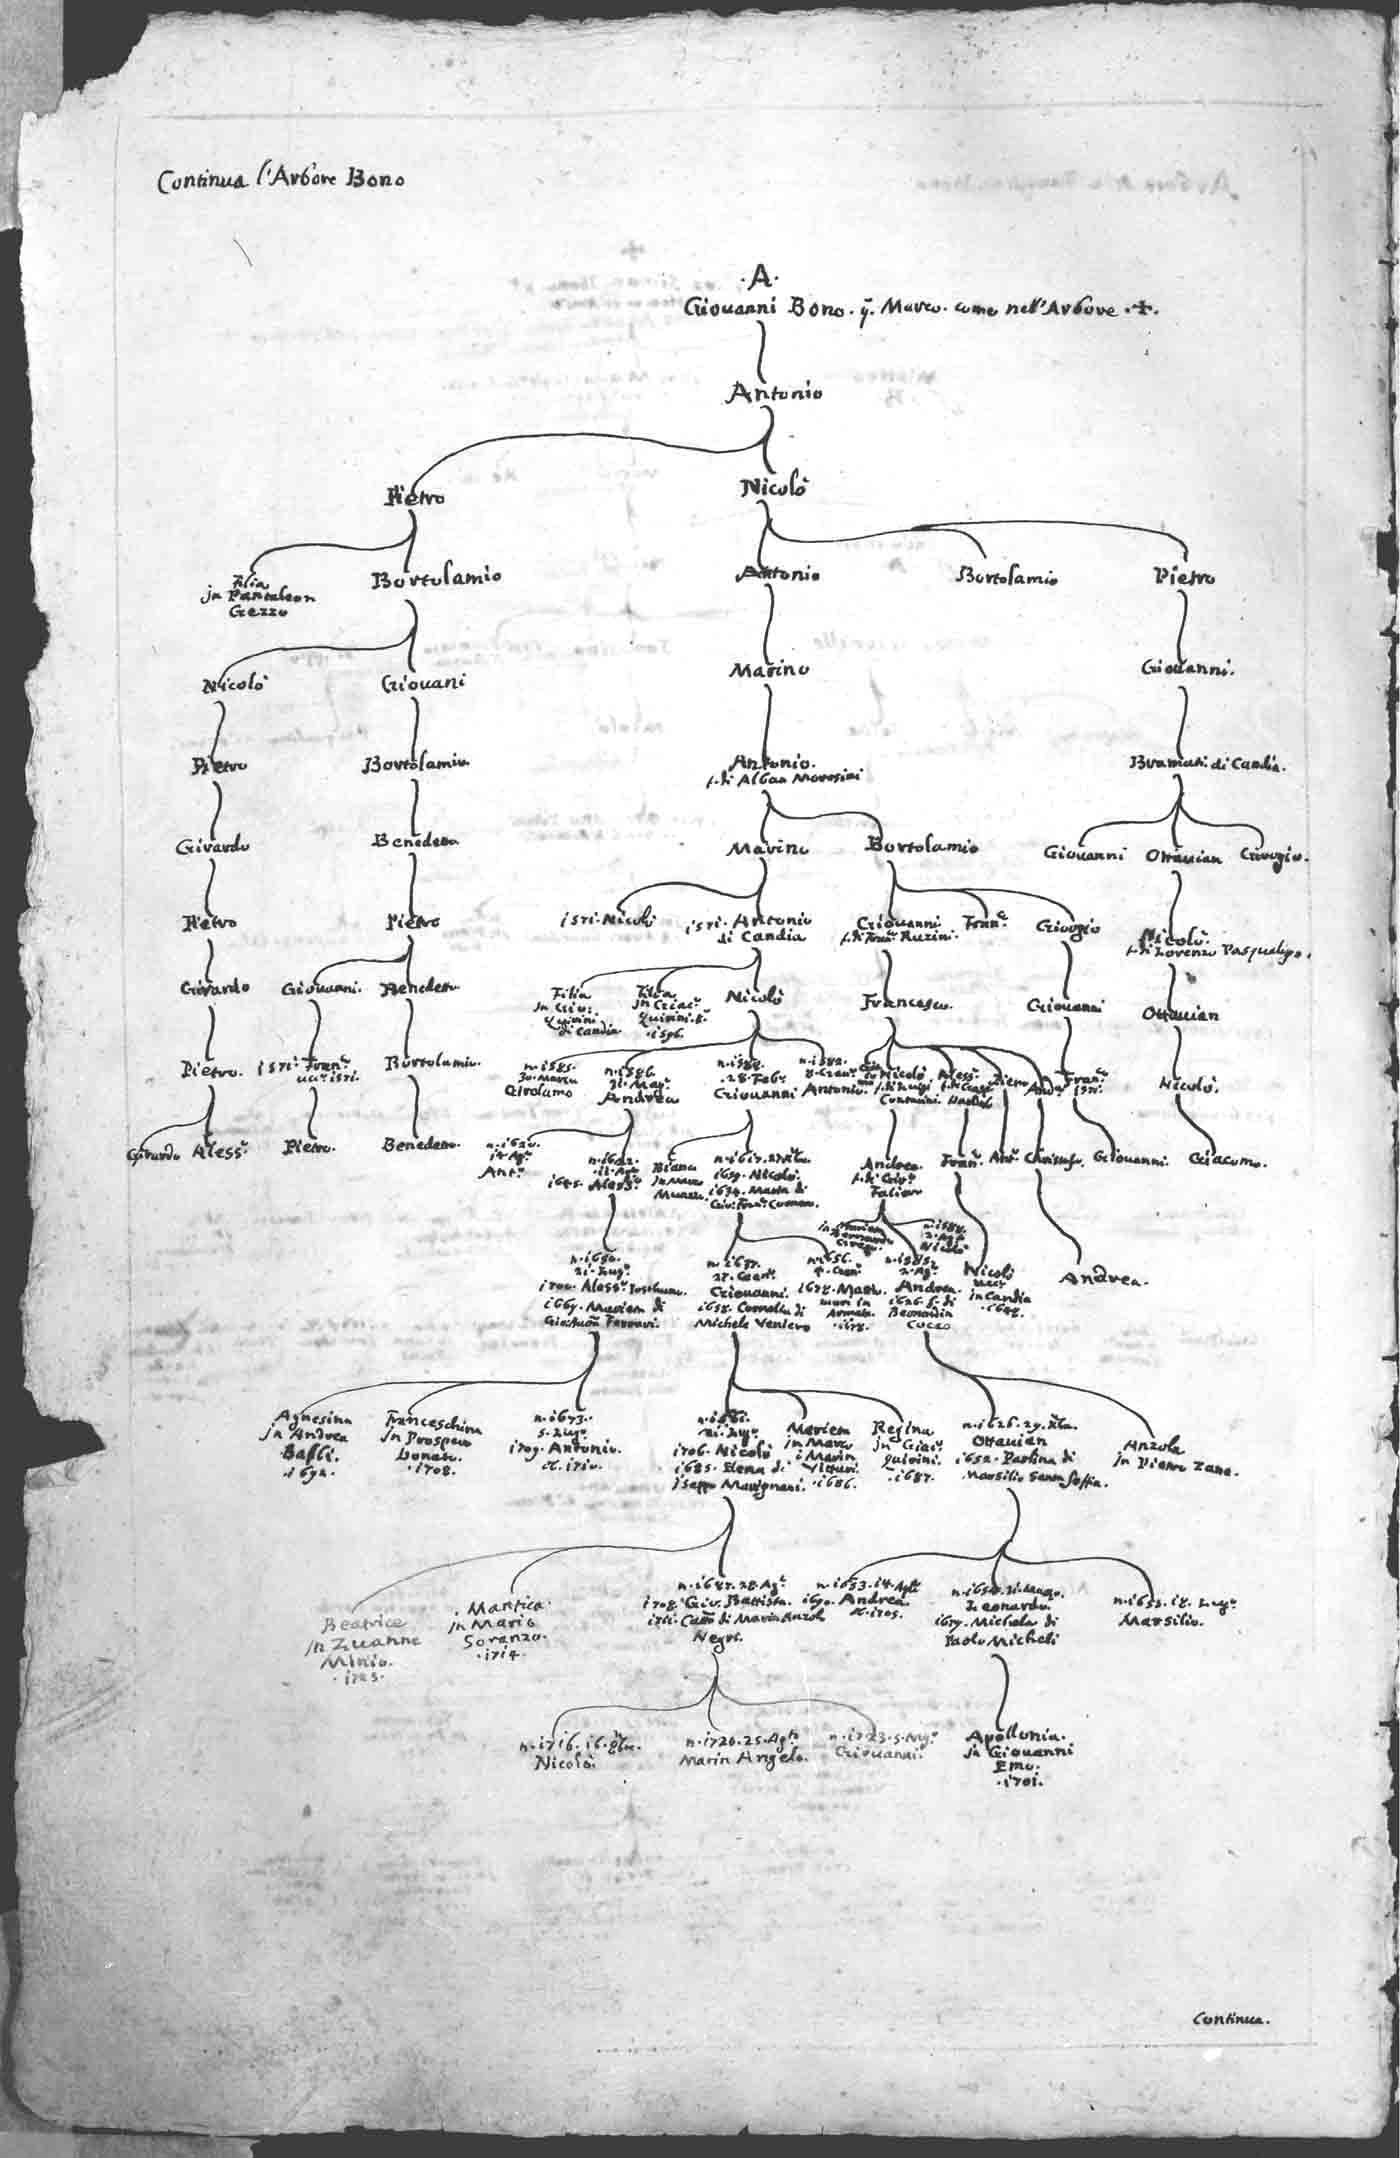 Continua l'Arbore Bono
.A.
Giouanni Bono. q. Marco. come nell'Arbore .+.
Antonio
Pietro
Nicolò
Filia
jn Pantaleon
Gezzo
Bortolamio
Antonio
Bortolamio
Pietro
Nicolò
Giouani
Marino
Giouanni.
Pietro
Bortolamio.
Antonio.
f. di Alban Moresini
Bramati: di Candia.
Girardo
Benedetto
Marino
Bortolamio
Giouanni
Ottauian
Giorgio.
Pietro
Pietro
1571. Nicolò
1571. Antonio
di Candia
Giouanni
f. di Franc. Ruzini.
Franc.
Giorgio
Nicolò.
f. di Lorenzo Pasqualigo.
Girardo
Giouanni.
Benedetto
Filia
jn Giu:
Quirini
di Candia
Filia
jn Giac.
Quirini
.1596.
Nicolò
Francesco.
Giouanni
Ottauian
Pietro.
1571. Franc.
ucc. 1571.
Bortolamio.
n. 1585.
30. Marzo
Girolamo
n. 1586.
31. Mag.
Andrea
n. 1588.
.28. Feb.
Giouanni
n. 1582.
Antonio.
Nicolò
f. di Luigi
Contarini.
Aless.
Piero
And.
Franc.
1571.
Nicolò.
Girardo
Aless.
Pietro.
Benedetto.
n. 1620.
14. Ag.
Ant.
n. 1622.
11. Ag.
1645. Aless.
Biana
jn Marco
n. 1617.
1659. Nicolò.
1634. Maria di
Giu: Franc. Corner.
Andrea.
f. di Giu.
Falier
Fran.
Ant.
Christofo.
Giouanni.
Giacomo.
n. 1650.
21. Lug.
1700. Aless. Postumo.
1667. Mariem di
Gio: Auan Ferrari.
n. 1637.
27. Genn.
Giouanni.
1658. Cornelia di
Michele Veniero
n. 1656.
1678. Marc.
mori in
Armata
.1678.
n. 1588.
2. Ag.
Nicolò
n. 1585.
2. Ag.
Andrea.
1626. f. di
Bernardin
Cocco
Nicolò
ucc.
in Candia
.1648.
Andrea.
Agnesina
jn Andrea
Balbi.
.1692.
Franceschina
jn Prospero
Donato.
.1708.
n. 1673.
5. Lug.
1709. Antonio.
1710.
n. 1661.
21. Lug.
1706. Nicolò
1685. Elena di
jseppo Marignani.
Mariem
jn Marco
i Marin
Vitturi.
.1686.
Regina
jn Giac.
Quirini.
.1687.
n. 1626. 29.
Ottauian
1652. Paolina di
Marsilio Santa Soffia.
Anzola
jn Pietro Zane.
Beatrice
jn Zuanne
Minio.
.1725.
Mantica
jn Mario
Soranzo.
.1714.
n. 1687. 28. Ag.
1708. Giu. Battista.
di Marin Anzolo
Negri.
n. 1653. 14. Ag.
1690. Andrea.
1705.
Leonardo.
1679. Michela di
Paolo Micheli
n. 1655. 18. Lug.
Marsilio.
n. 1716. 16.
Nicolò.
n. 1720. 25. Ag.
Marin Angelo.
n. 1723. 5. Mg.
Giouanni.
Apollonia.
jn Giouanni
Emo.
.1701.
Continua.